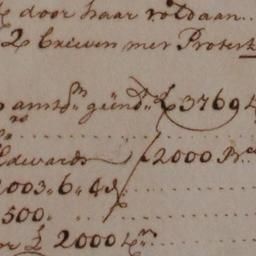 door haar voldaan..
2 brieven met Protest
amts gëind. £ 3769
Edwards £2000
003„6„4d
500.
£ 2000